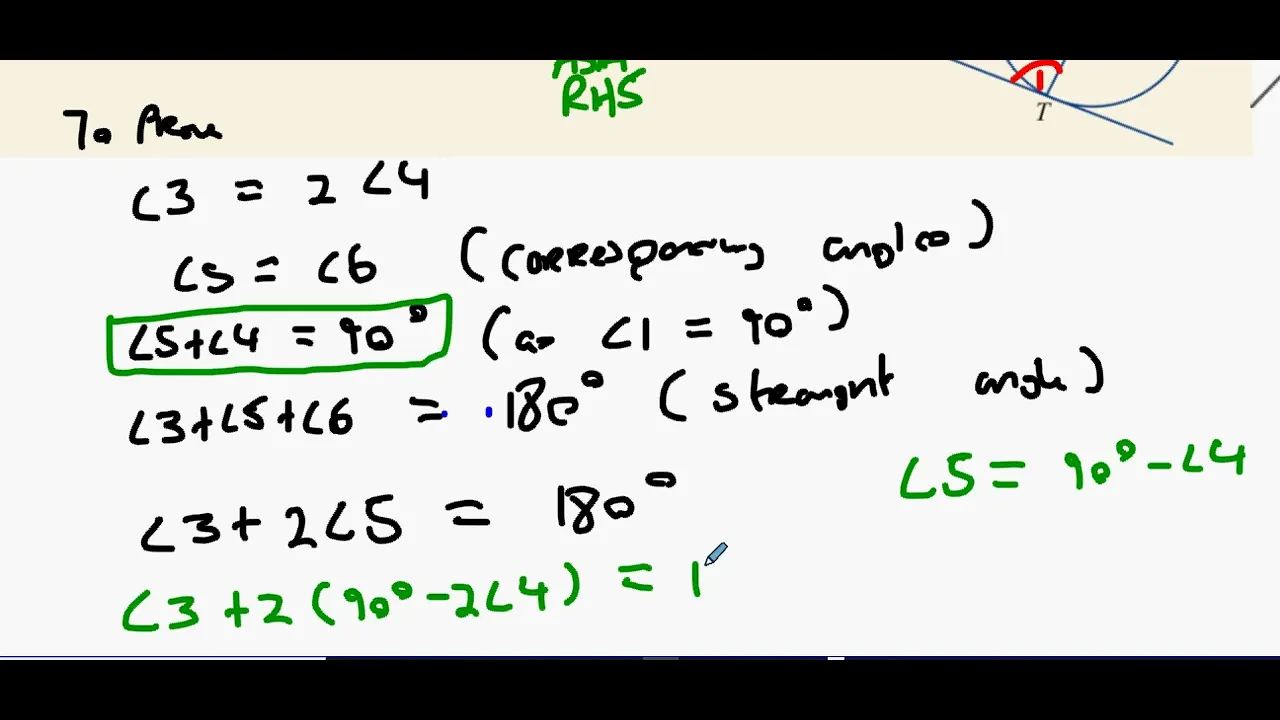 RHS
T
1
To Prove
∠3 = 2∠4
∠5 = ∠6 (corresponding angles)
∠5+∠4 = 90° (as ∠1 = 90°)
∠3+∠5+∠6 = 180° (straight angle)
∠5 = 90° - ∠4
∠3 + 2∠5 = 180°
∠3 + 2(90° - 2∠4) = 1